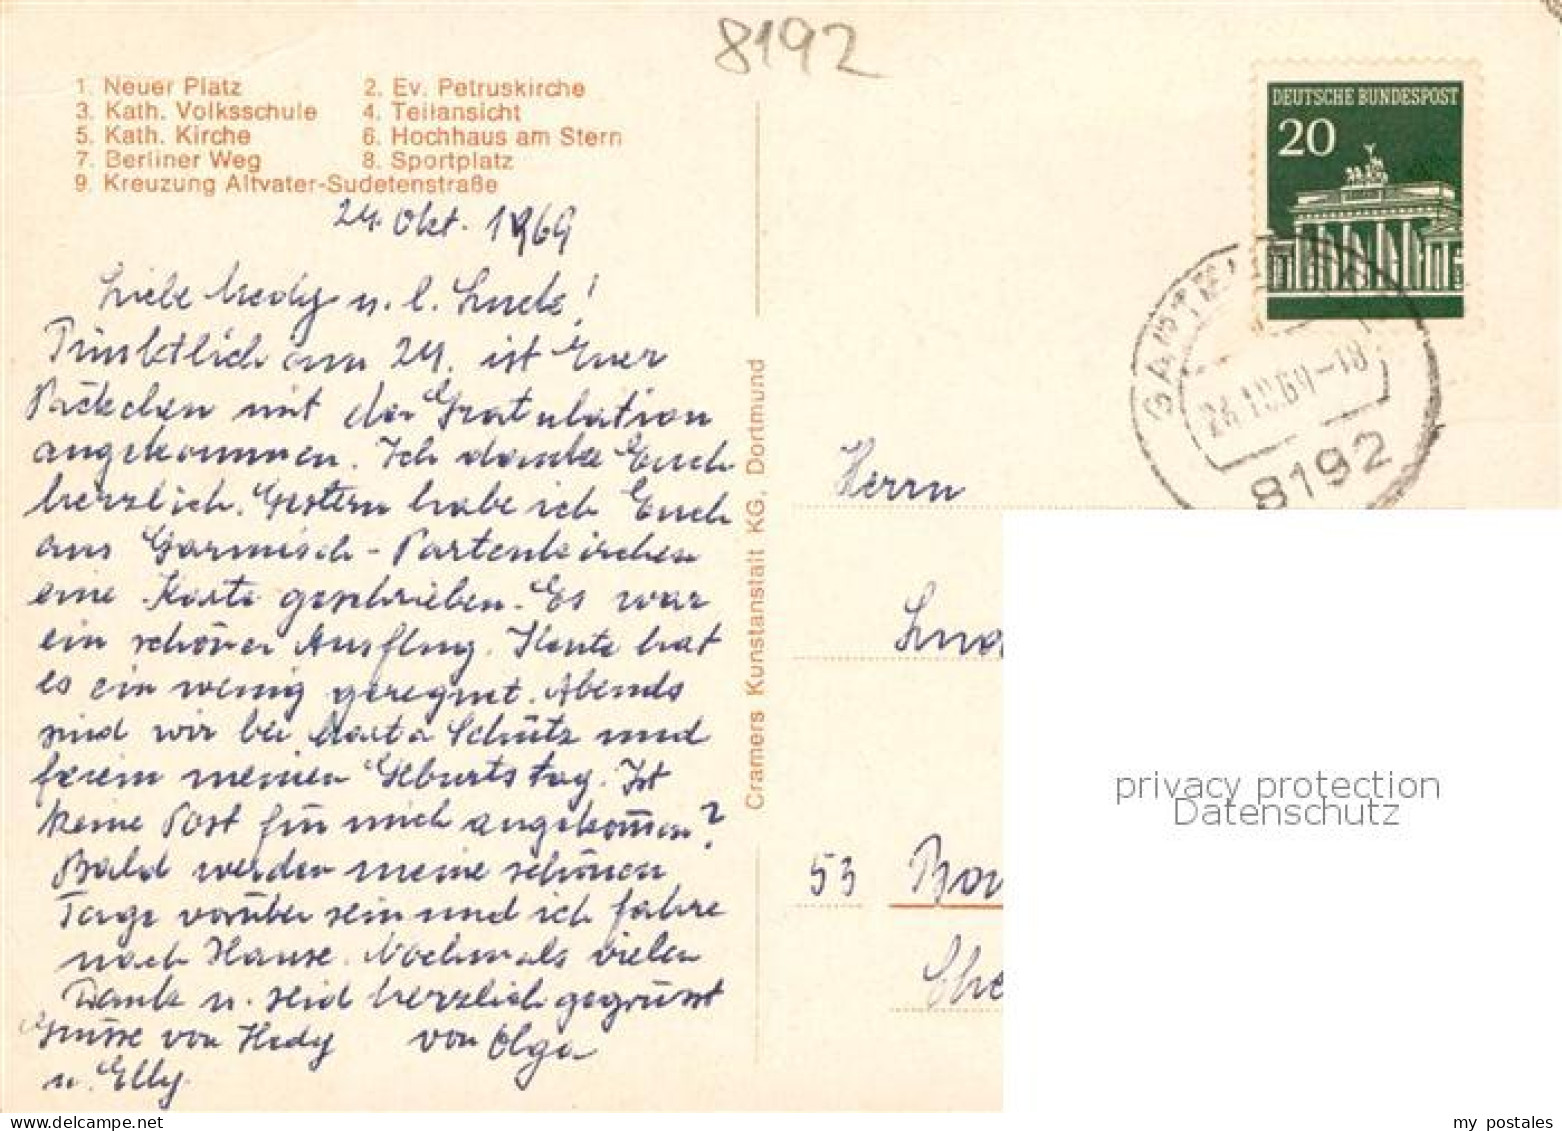 8192
1. Neuer Platz 2. Ev. Petruskirche
3. Kath. Volksschule 4. Teilansicht
5. Kath. Kirche 6. Hochhaus am Stern
7. Berliner Weg 8. Sportplatz
9. Kreuzung Altvater-Sudetenstraße
24. Okt. 1969
Liebe u. l.
Pünktlich am 24. ist Euer
Päckchen mit der Gratulation
angekommen. Ich danke Euch
herzlich. Gestern habe ich Euch
aus Garmisch-Partenkirchen
eine Karte geschrieben. Es war
ein schöner Ausflug. Heute hat
es ein wenig geregnet. Abends
sind wir bei Marta Schütz und
feiern meinen Geburtstag. Ist
keine Post für mich angekom̄en?
Bald werden meine schönen
Tage vorüber sein und ich fahre
nach Hause. Nochmals vielen
Dank u. seid herzlich gegrüsst
Grüsse von Hedy von Olga
u. Elly
Cramers Kunstanstalt KG, Dortmund
DEUTSCHE BUNDESPOST
20
8192
Herrn
53
privacy protection
Datenschutz
my postales